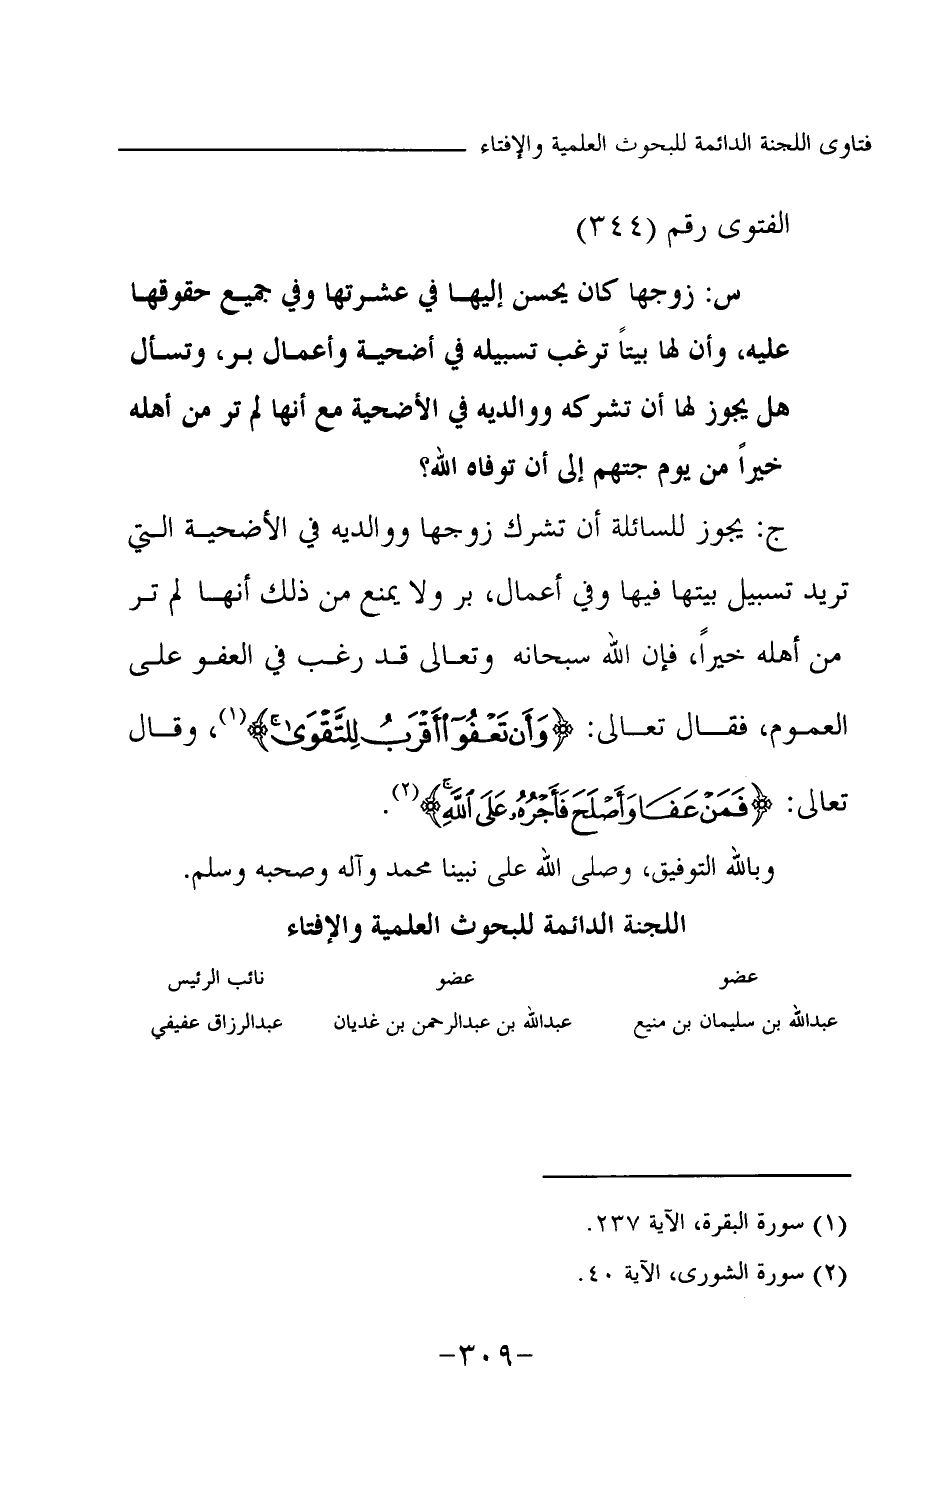 فتاوى اللجنة الدائمة للبحوث العلمية والإفتاء
الفتوى رقم (٣٤٤)
س: زوجها كان يحسن إليها في عشرتها وفي جميع حقوقها
عليه، وأن لها بيتاً ترغب تسبيله في أضحية وأعمال بر، وتسأل
هل يجوز لها أن تشركه ووالديه في الأضحية مع أنها لم تر من أهله
خيراً من يوم جتهم إلى أن توفاه الله؟
ج: يجوز للسائلة أن تشرك زوجها ووالديه في الأضحية التي
تريد تسبيل بيتها فيها وفي أعمال، بر ولا يمنع من ذلك أنها لم تر
من أهله خيراً، فإن الله سبحانه وتعالى قد رغب في العفو على
العموم، فقال تعالى: ﴿وَأَن تَعْفُوٓا۟ أَقْرَبُ لِلتَّقْوَىٰ ۚ﴾(١)، وقال
تعالى: ﴿فَمَنْ عَفَا وَأَصْلَحَ فَأَجْرُهُۥ عَلَى ٱللَّهِ ۚ﴾(٢).
وبالله التوفيق، وصلى الله على نبينا محمد وآله وصحبه وسلم.
اللجنة الدائمة للبحوث العلمية والإفتاء
عضو عضو نائب الرئيس
عبدالله بن سليمان بن منيع عبدالله بن عبدالرحمن بن غديان عبدالرزاق عفيفي
(١) سورة البقرة، الآية ٢٣٧.
(٢) سورة الشورى، الآية ٤٠.
-٣٠٩-